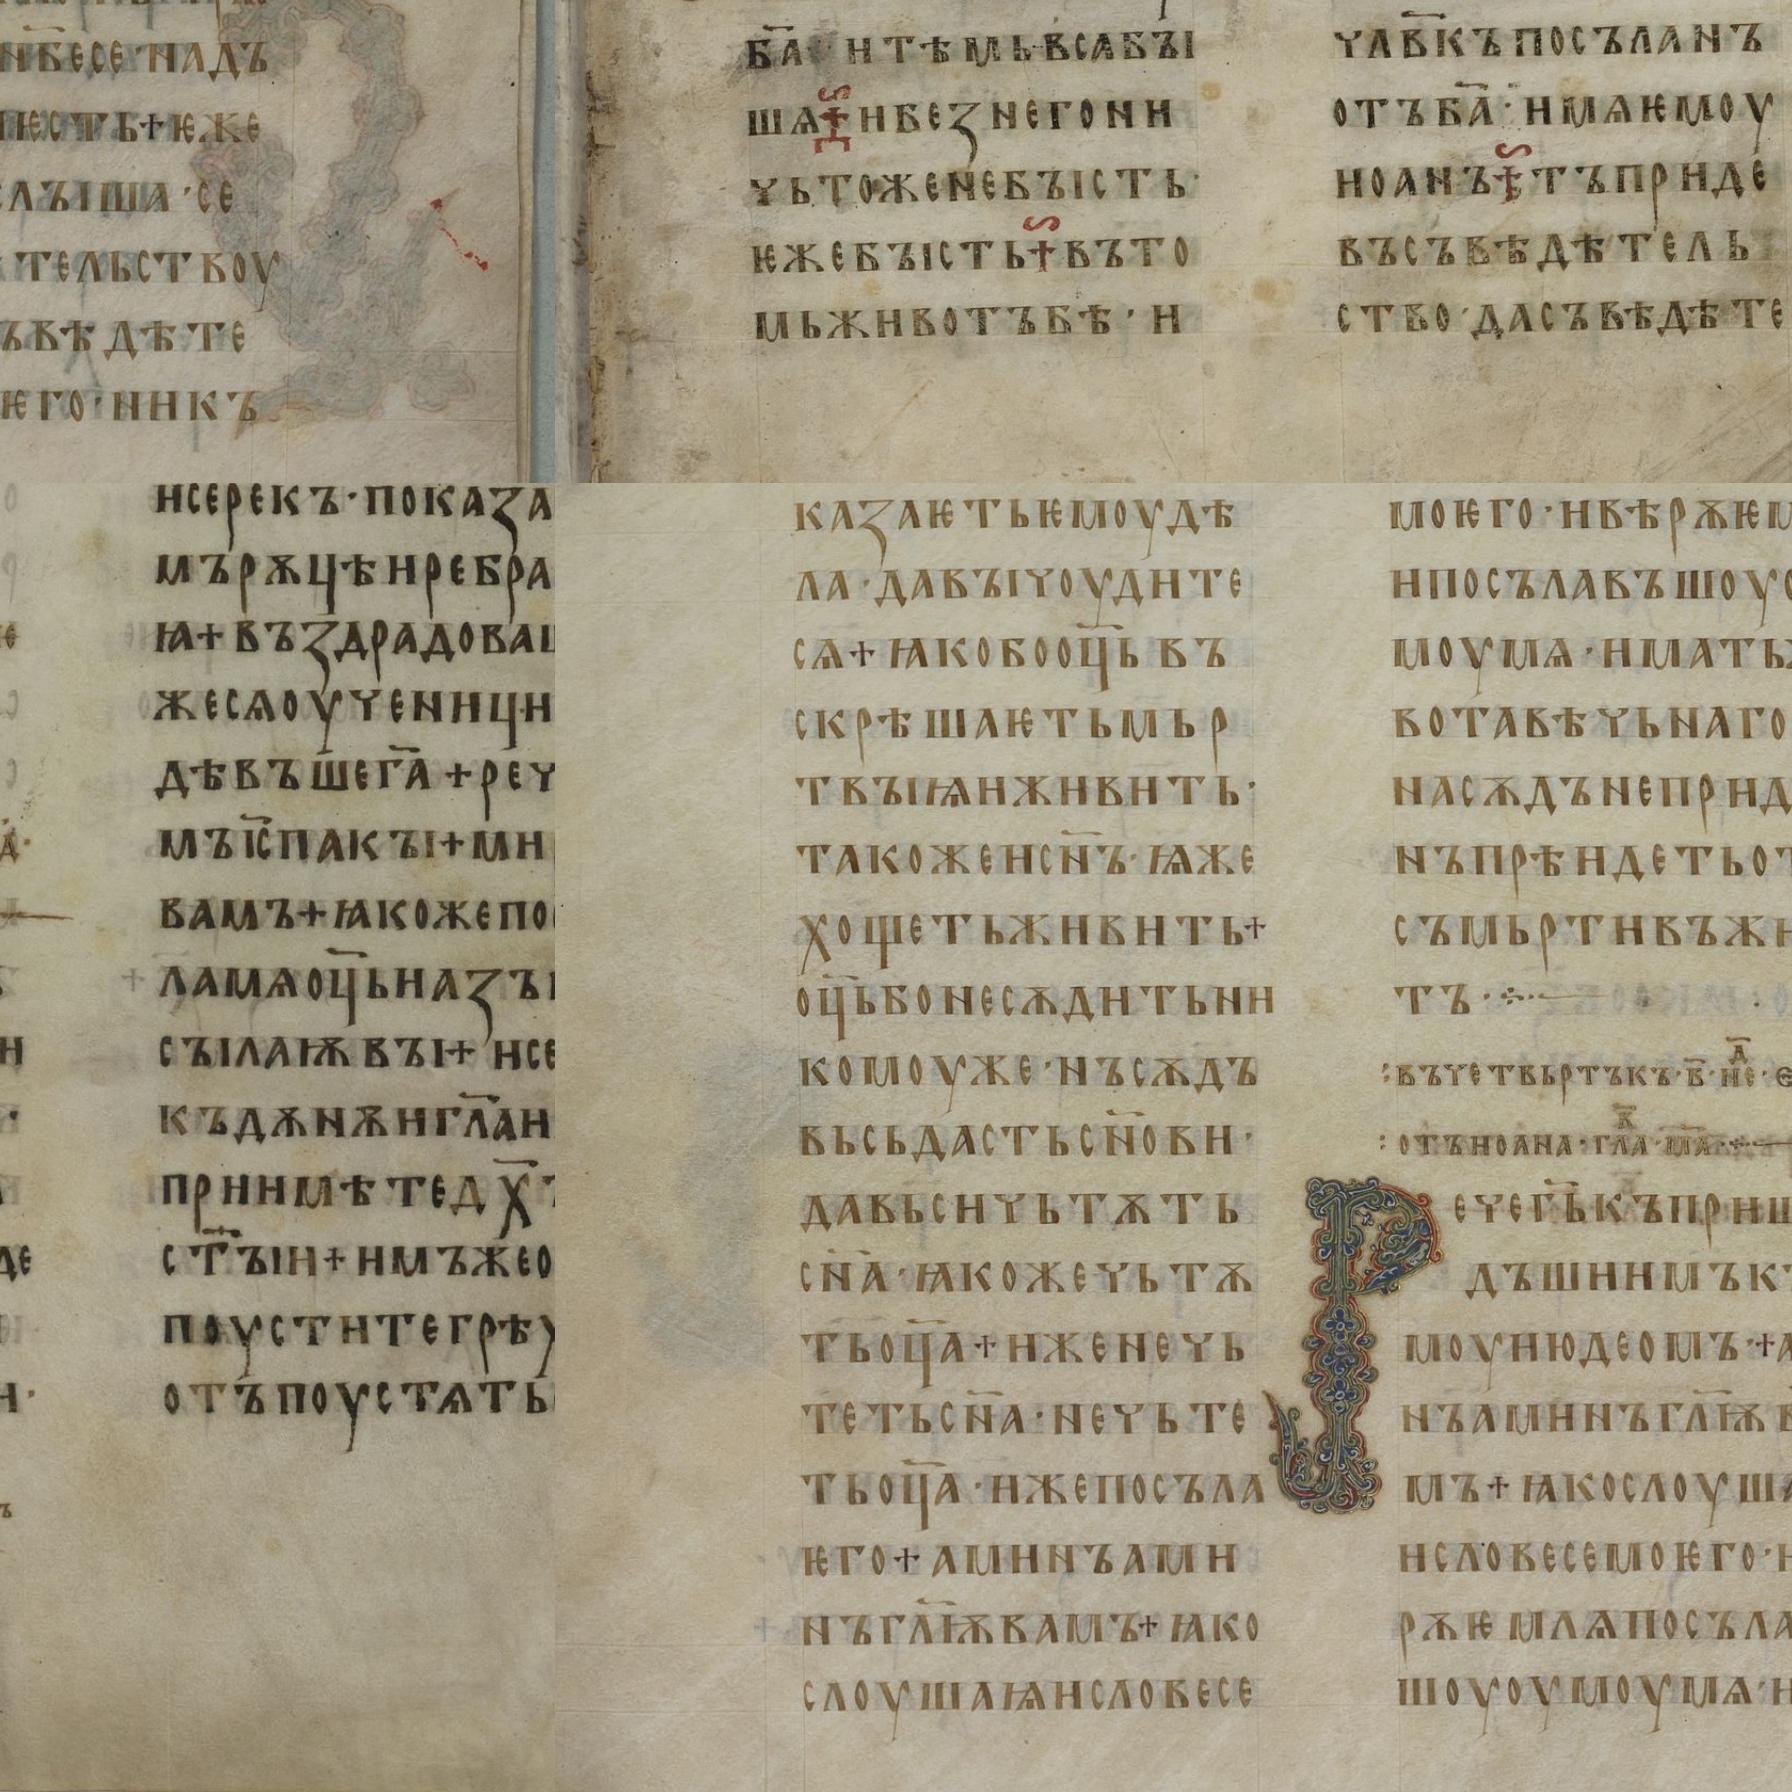 нб҃есе·надъ
ѥстъ+ѥже
слꙑша·се
тельствоу
ъвѣдѣте
ѥго·никъ
ба҃·итѣмьвсѧбꙑ
шѧ+ибезнегони
чьтоженебꙑсть·
ѥжебꙑсть+въто
мьживотъбѣ·и
чл҃вкъпосъланъ
отъба҃·имѧѥмоу
иоанъ+тъприде
въсъвѣдѣтель
ство·дасъвѣдѣте
исерекъ·показа
мърѫцѣиребра
ꙗ+въздрадоваш
жесѧоученици
дѣвъшег҃а+реч
мъіс҃пакꙑ+ми
вамъ+ꙗкожепо
ламѧоц҃ьиазъ
сꙑлаѭвꙑ+исе
къдѫнѫигл҃аи
приимѣтедх҃
ст҃ꙑи+имъжео
поуститегрѣ
отъпоустѧть
казаѥтьѥмоудѣ
ла·давꙑчоудите
сѧ+ꙗкобооц҃ьвъ
скрѣшаѥтьмьр
твꙑѩиживить·
такожеисн҃ъ·ѩже
хощетьживить+
оц҃ьбонесѫдитьни
комоуже·нъсѫдъ
вьсьдастьсн҃ови·
давьсичьтѫть
сн҃а·ꙗкожечьтѫ
тьоц҃а+иженечь
тетьсн҃а·нечьте
тьоц҃а·ижепосъла
ѥго+аминъами
нъгл҃ѭвамъ+ꙗко
слоушаѩисловесе
моѥго·ивѣрѫѥм
ипосълавъшоу
моумѧ·иматьж
вотавѣчьнаго
насѫдънеприд
нъпрѣидетьот
съмьртивъжи
тъ·
въчетвьртъкъ·в҃·не҃·е
отъиоана·гл҃а·
ечегь҃къприш
дъшиимък
моуиюдеомъ·+а
нъаминъгл҃ѭв
мъ+ꙗкослоуша
исловесемоѥго·
рѫѥмлѧпосъла
шоуоумоумѧ·и